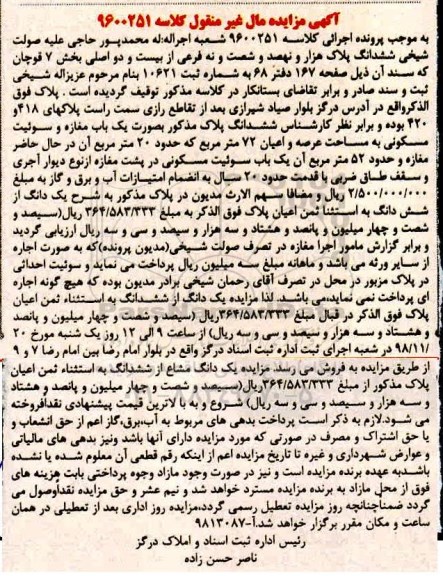 آگهی مزایده مال غیر منقول کلاسه ۹۶۰۰۲۵۱
به موجب پرونده اجرائی کلاسه ۹۶۰۰۲۵۱ شعبه اجراله:له محمدپور حاجی علیه صولت
شیخی ششدانگ پلاک هزار و نهصد و شصت و نه فرعی از بیست و دو اصلی بخش ۷ قوچان
که سند آن ذیل صفحه ۱۶۷ دفتر ۶۸ به شماره ثبت ۱۰۶۲۱ بنام مرحوم عزیزاله شیخی
ثبت و سند صادر و برابر تقاضای بستانکار در کلاسه مذکور توقیف گردیده است . پلاک فوق
الذکرواقع در آدرس درگز بلوار صیاد شیرازی بعد از تقاطع رازی سمت راست پلاکهای ۴۱۸و
۴۲۰ بوده و برابر نظر کارشناس ششدانگ پلاک مذکور بصورت یک باب مغازه و سوئیت
مسکونی به مساحت عرصه و اعیان ۷۲ متر مربع که حدود ۲۰ متر مربع آن در حال حاضر
مغازه و حدود ۵۲ متر مربع آن یک باب سوئیت مسکونی در پشت مغازه ازنوع دیوار آجری
و سقف طاق ضربی با قدمت حدود ۲۰ سال به انضمام امتیازات آب و برق و گاز به مبلغ
۲/۵۰۰/۰۰۰/۰۰۰ ریال و مضافا سهم الارث مدیون در پلاک مذکور به شرح یک دانگ از
شش دانگ به استثنا ثمن اعیان پلاک فوق الذکر به مبلغ ۳۶۴/۵۸۳/۳۳۳ ریال(سیصد و
شصت و چهار میلیون و پانصد و هشتاد و سه هزار و سیصد و سی و سه ریال ارزیابی گردید
و برابر گزارش مامور اجرا مغازه در تصرف صولت شیخی(مدیون پرونده)که به صورت اجاره
از سایر ورثه می باشد و ماهانه مبلغ سه میلیون ریال پرداخت می نماید و سوئیت احداثی
در پلاک مزبور در محل در تصرف آقای رحمان شیخی برادر مدیون بوده که هیچ گونه اجاره
ای پرداخت نمی نماید،می باشد. لذا مزایده یک دانگ از ششدانگ به استثناء ثمن اعیان
پلاک فوق الذکر در قبال مبلغ ۳۶۴/۵۸۳/۳۳۳ریال (سیصد و شصت و چهار میلیون و پانصد
و هشتاد و سه هزار و سیصد و سی و سه ریال) از ساعت ۹ الی ۱۲ روز یک شنبه مورخ ۲۰
/۹۸/۱۱ در شعبه اجرای ثبت اداره ثبت اسناد درگز واقع در بلوار امام رضا بین امام رضا ۷ و ۹
از طریق مزایده به فروش می رسد. مزایده یک دانگ مشاع از ششدانگ به استثناء ثمن اعیان
پلاک مذکور از مبلغ ۳۶۴/۵۸۳/۳۳۳ریال(سیصد و شصت و چهار میلیون و پانصد و هشتاد
و سه هزار و سیصد و سی و سه ریال) شروع و به با لاترین قیمت پیشنهادی نقدافروخته
می شود.لازم به ذکر است پرداخت بدهی های مربوط به آب،برق،گاز اعم از حق انشعاب و
یا حق اشتراک و مصرف در صورتی که مورد مزایده دارای آنها باشد ونیز بدهی های مالیاتی
و عوارض شهرداری و غیره تا تاریخ مزایده اعم از اینکه رقم قطعی آن معلوم شده یا نشده
باشدبه عهده برنده مزایده است و نیز در صورت وجود مازاد وجوه پرداختی بابت هزینه های
فوق از محل مازاد به برنده مزایده مسترد خواهد شد و نیم عشر و حق مزایده نقداًوصول می
گردد ضمناًچنانچه روز مزایده تعطیل رسمی گردد،مزایده روز اداری بعد از تعطیلی در همان
ساعت و مکان مقرر برگزار خواهد شد.آ-۹۸۱۳۰۸۷
رئیس اداره ثبت اسناد و املاک درگز
ناصر حسن زاده